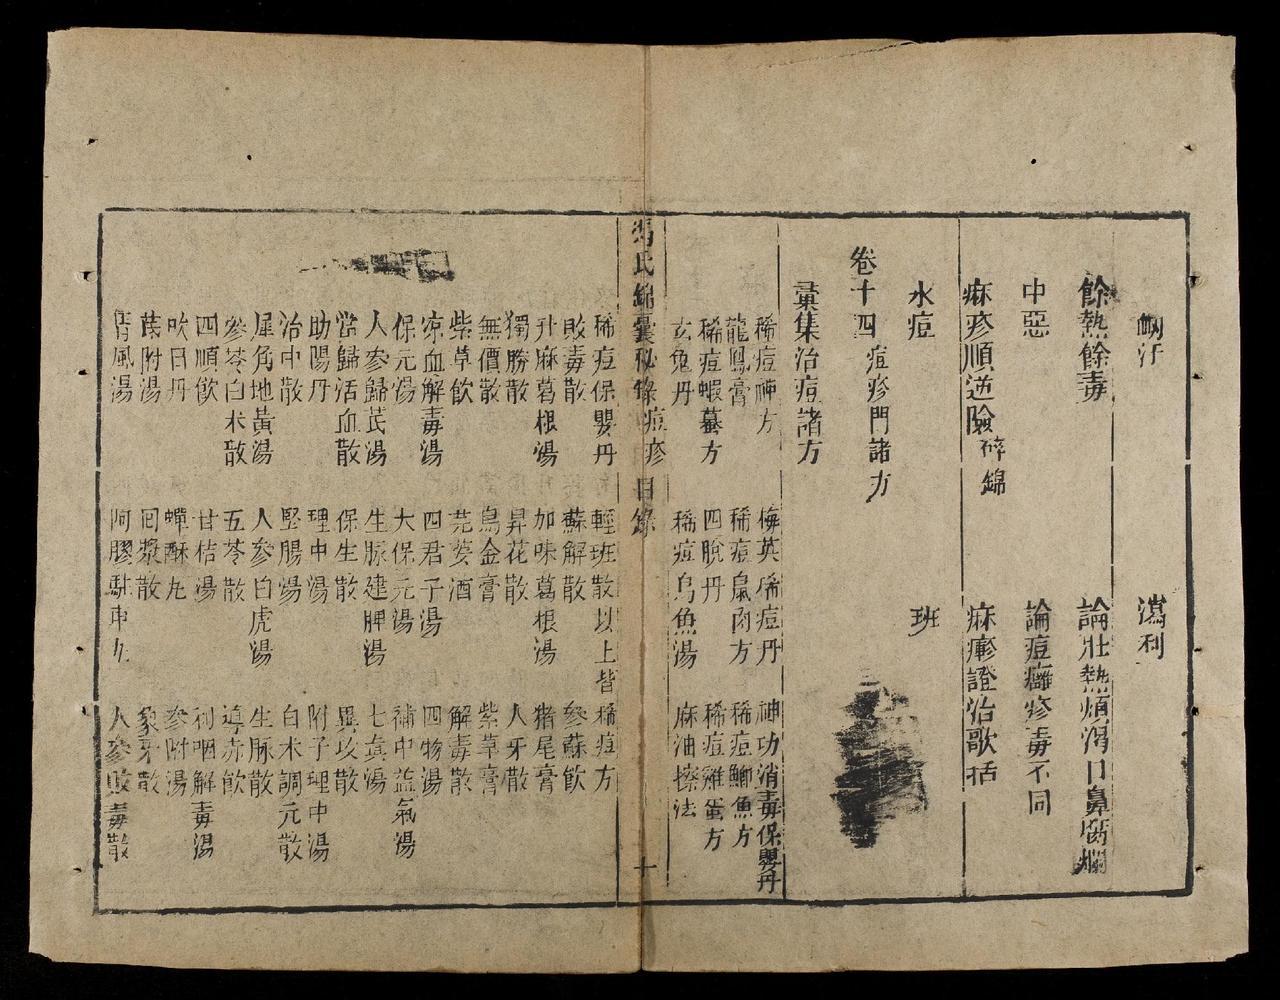 衂汗　瀉利
餘熱餘毒　論壯熱煩渴口鼻腐爛
中惡　論痘癰疹毒不同
痳疹順逆險碎錦　痳瘮證治歌括
水痘　班
卷十四痘疹門諸方
彙集治痘諸方
稀痘神方　梅英稀痘丹　神功消毒保嬰丹
龍鳳膏　稀痘鼠肉方　稀痘鯽魚方
稀痘蝦蟇方　四脫丹　稀痘雞蛋方
玄兔丹　稀痘烏魚湯　麻油擦法
馮氏錦囊秘錄痘疹　目錄　十
稀痘保嬰丹　輕班散以上皆稀痘方
敗毒散　蘇解散　參蘇飲
升麻葛根湯　加味葛根湯　猪尾膏
獨勝散　昇花散　人牙散
無價散　烏金膏　紫草膏
紫草飲　芫荽酒　解毒散
凉血解毒湯　四君子湯　四物湯
保元湯　大保元湯　補中益氣湯
人參歸芪湯　生脉建脾湯　七真湯
當歸活血散　保生散　異攻散
助陽丹　理中湯　附子理中湯
治中散　堅腸湯　白术調元散
犀角地黃湯　人參白虎湯　生脉散
參苓白术散　五苓散　導赤飲
四順飲　甘桔湯　利咽解毒湯
吹口丹　蟬酥丸　參附湯
茂附湯　回漿散　象牙散
胃風湯　阿膠駐車丸　人參敗毒散